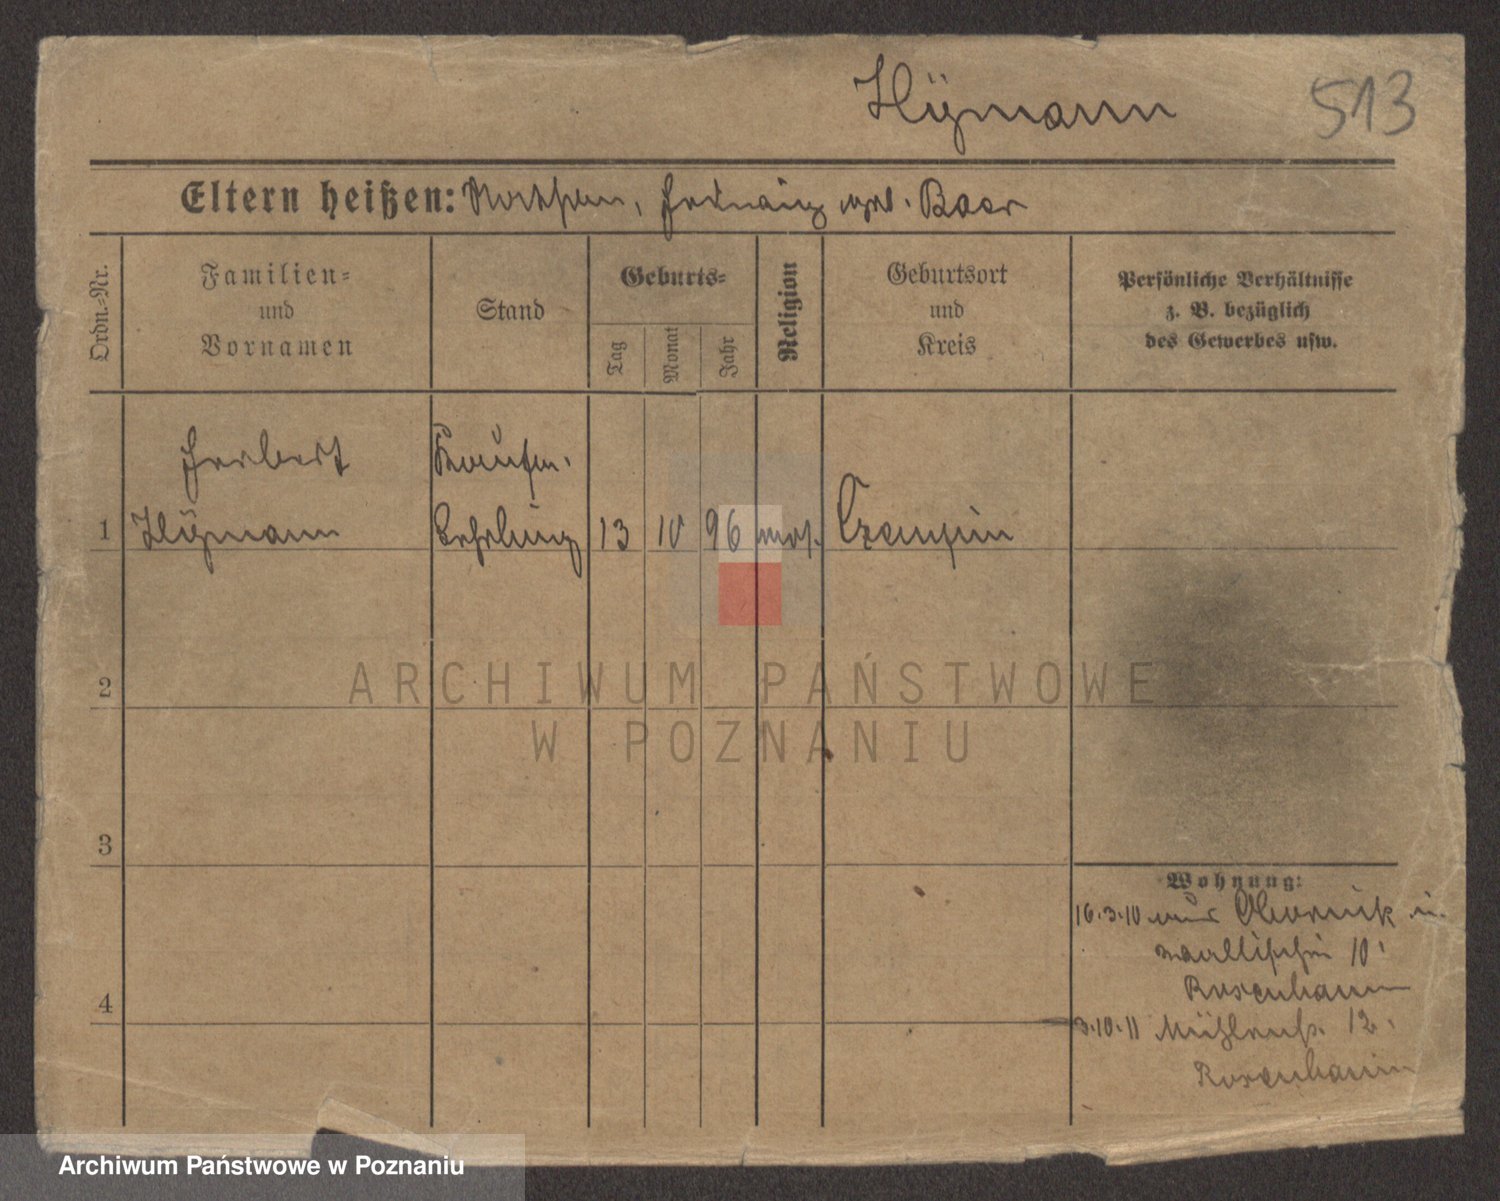 Hÿmann
513
Eltern heißen: Nathan, Hedwig geb. Baer
Ordn.=Nr.
Familien=
und
Vornamen
Stand
Geburts=
Tag
Monat
Jahr
Religion
Geburtsort
und
Kreis
Persönliche Verhältnisse
z. B. bezüglich
des Gewerbes usw.
Herbert Kaufm.
1 Hÿmann Lehrling 13 10 96 mos. Czempin
2
ARCHIWUM PAŃSTWOWE
W POZNANIU
3
Wohnung:
16.3.10 aus Obornik n.
Wallischei 10.
Rosenbaum
4
3.10.11 12.
Rosenbaum
Archiwum Państwowe w Poznaniu